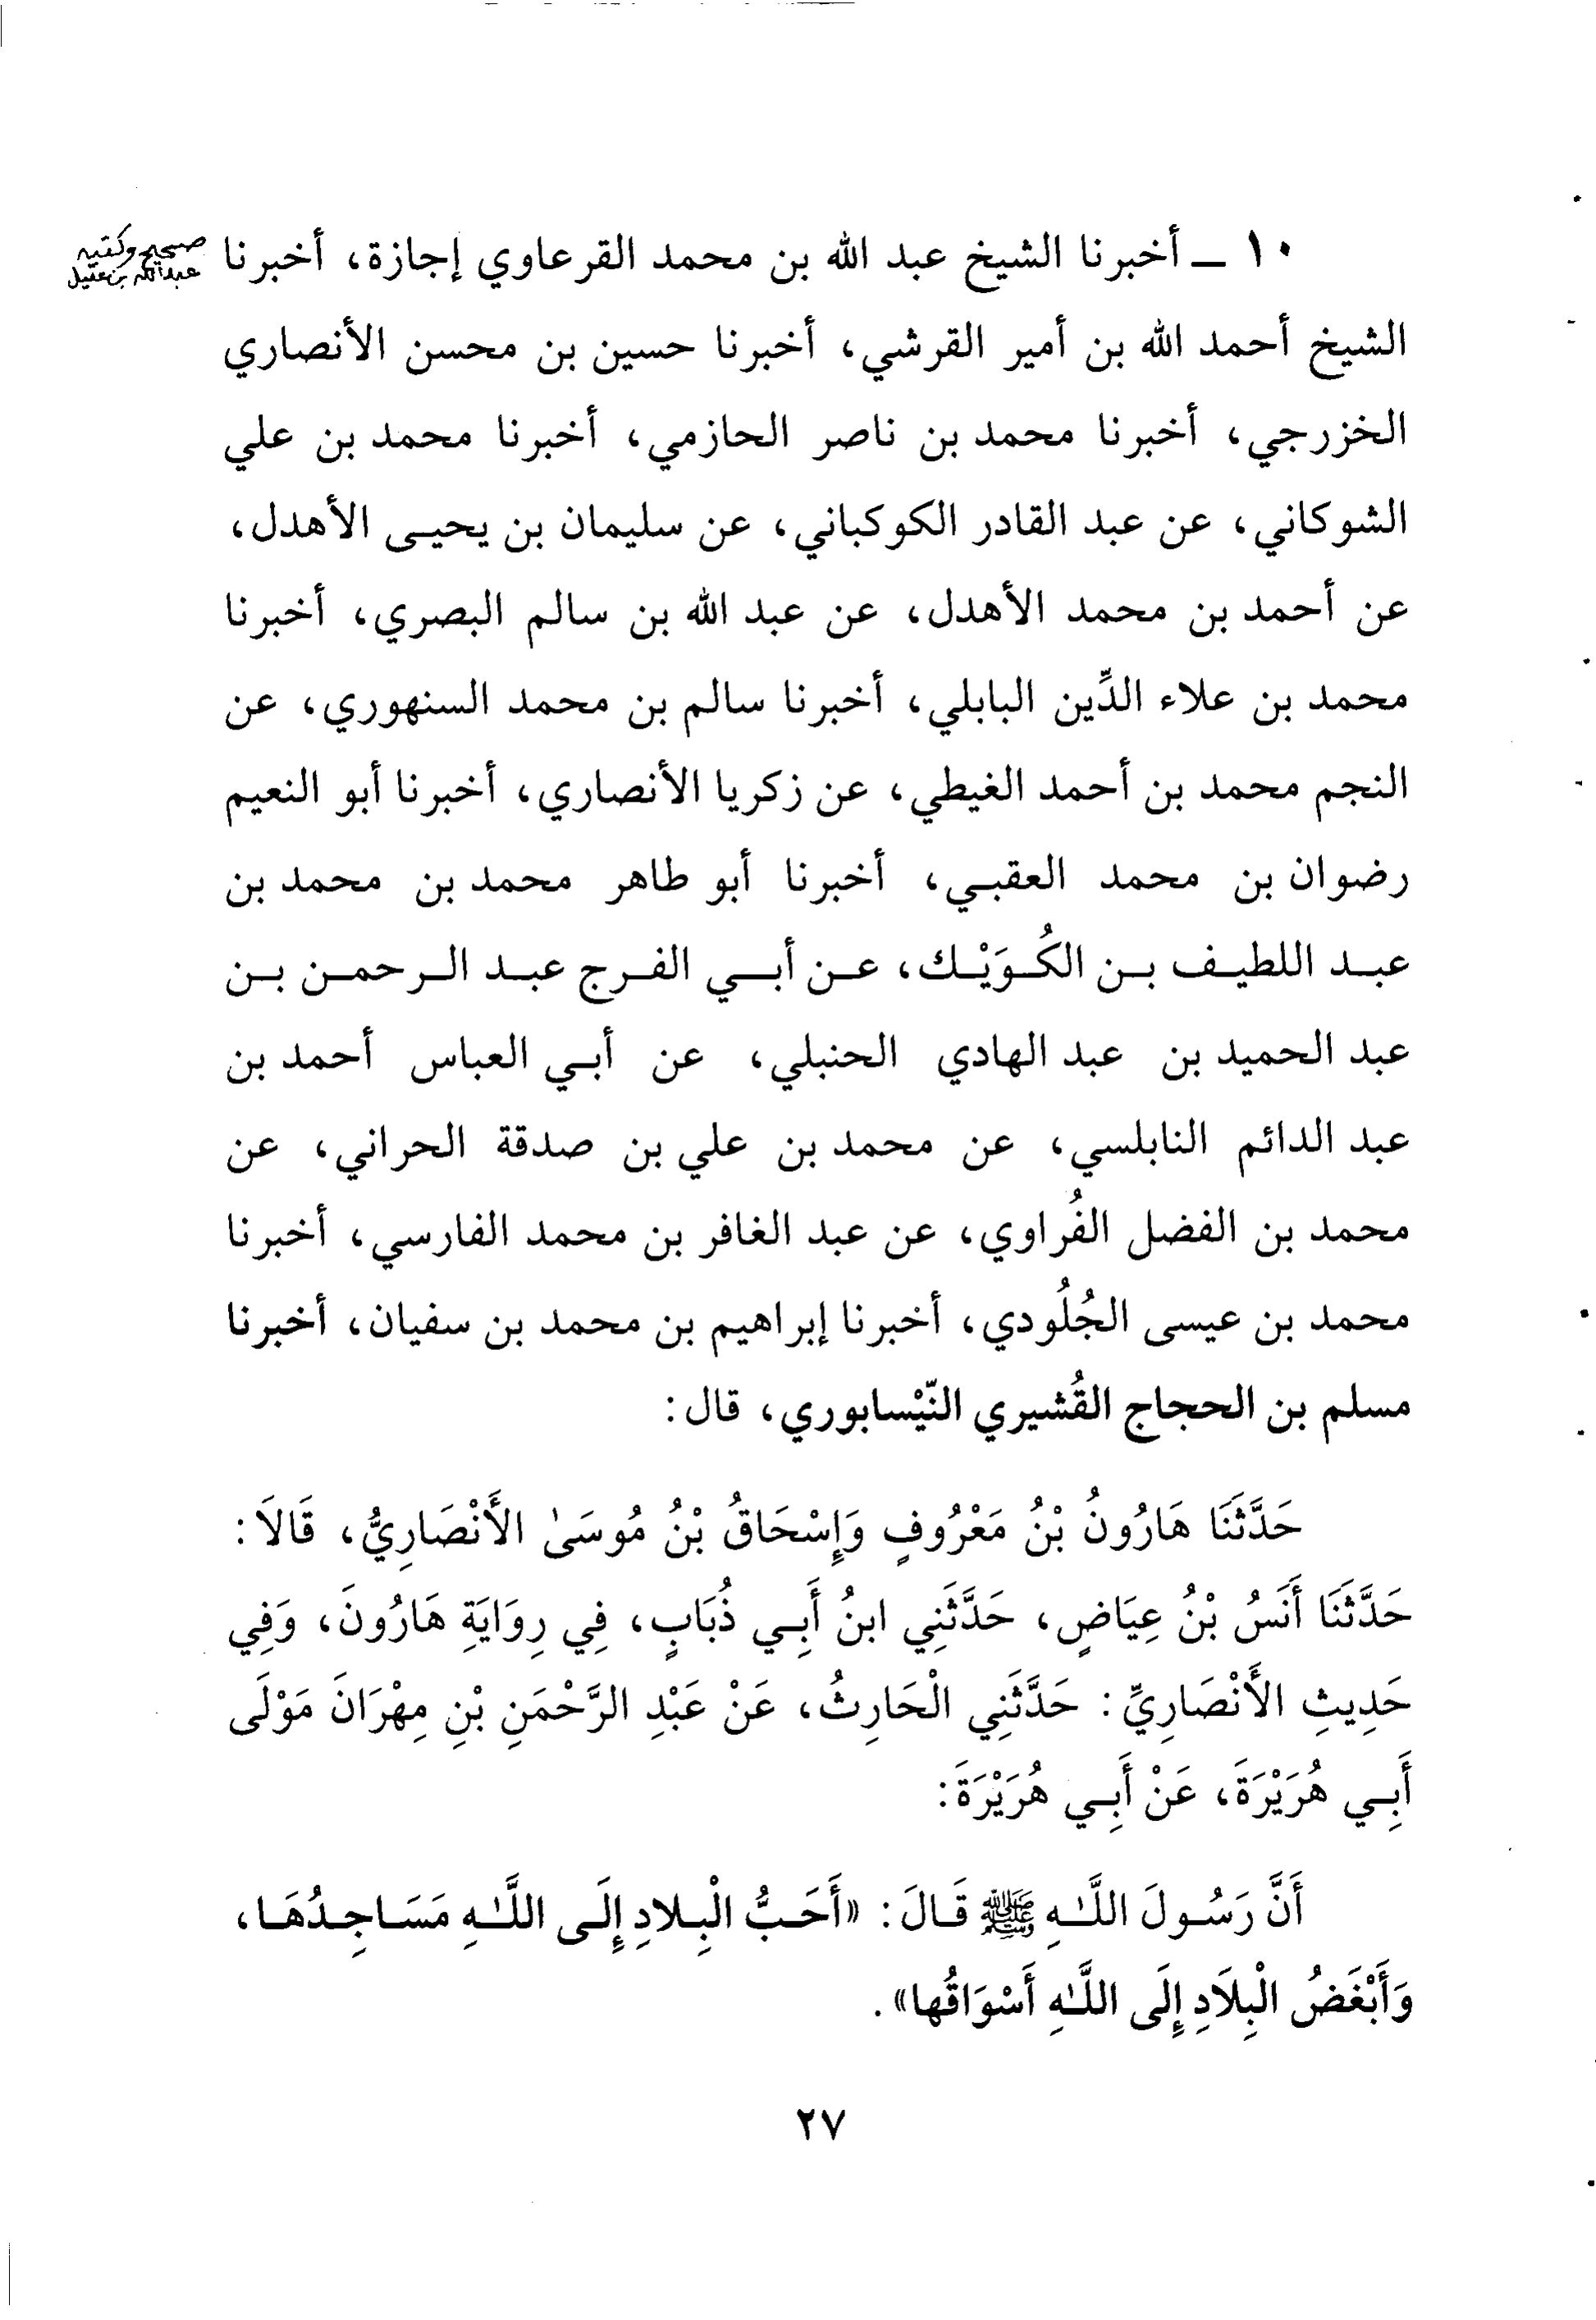 ١٠ ــ أخبرنا الشيخ عبد الله بن محمد القرعاوي إجازة، أخبرنا
صحيح وكتبه
عبدالله بن عقيل
الشيخ أحمد الله بن أمير القرشي، أخبرنا حسين بن محسن الأنصاري
الخزرجي، أخبرنا محمد بن ناصر الحازمي، أخبرنا محمد بن علي
الشوكاني، عن عبد القادر الكوكباني، عن سليمان بن يحيـى الأهدل،
عن أحمد بن محمد الأهدل، عن عبد الله بن سالم البصري، أخبرنا
محمد بن علاء الدِّين البابلي، أخبرنا سالم بن محمد السنهوري، عن
النجم محمد بن أحمد الغيطي، عن زكريا الأنصاري، أخبرنا أبو النعيم
رضوان بن محمد العقبـي، أخبرنا أبو طاهر محمد بن محمد بن
عبـد اللطيـف بـن الكُـوَيْـك، عـن أبـي الفـرج عبـد الـرحمـن بـن
عبد الحميد بن عبد الهادي الحنبلي، عن أبـي العباس أحمد بن
عبد الدائم النابلسي، عن محمد بن علي بن صدقة الحراني، عن
محمد بن الفضل الفُراوي، عن عبد الغافر بن محمد الفارسي، أخبرنا
محمد بن عيسى الجُلُودي، أخبرنا إبراهيم بن محمد بن سفيان، أخبرنا
مسلم بن الحجاج القُشيري النَّيْسابوري، قال:
حَدَّثَنَا هَارُونُ بْنُ مَعْرُوفٍ وَإِسْحَاقُ بْنُ مُوسَىٰ الأَنْصَارِيُّ، قَالاَ:
حَدَّثَنَا أَنَسُ بْنُ عِيَاضٍ، حَدَّثَنِي ابنُ أَبِـي ذُبَابٍ، فِي رِوَايَةِ هَارُونَ، وَفِي
حَدِيثِ الأَنْصَارِيِّ: حَدَّثَنِي الْحَارِثُ، عَنْ عَبْدِ الرَّحْمَنِ بْنِ مِهْرَانَ مَوْلَى
أَبِـي هُرَيْرَةَ، عَنْ أَبِـي هُرَيْرَةَ:
أَنَّ رَسُـولَ اللَّـٰهِ ﷺ قَـالَ: «أَحَـبُّ الْبِـلادِ إِلَـى اللَّـٰهِ مَسَـاجِـدُهَـا،
وَأَبْغَضُ الْبِلاَدِ إِلَى اللَّـٰهِ أَسْوَاقُها».
٢٧